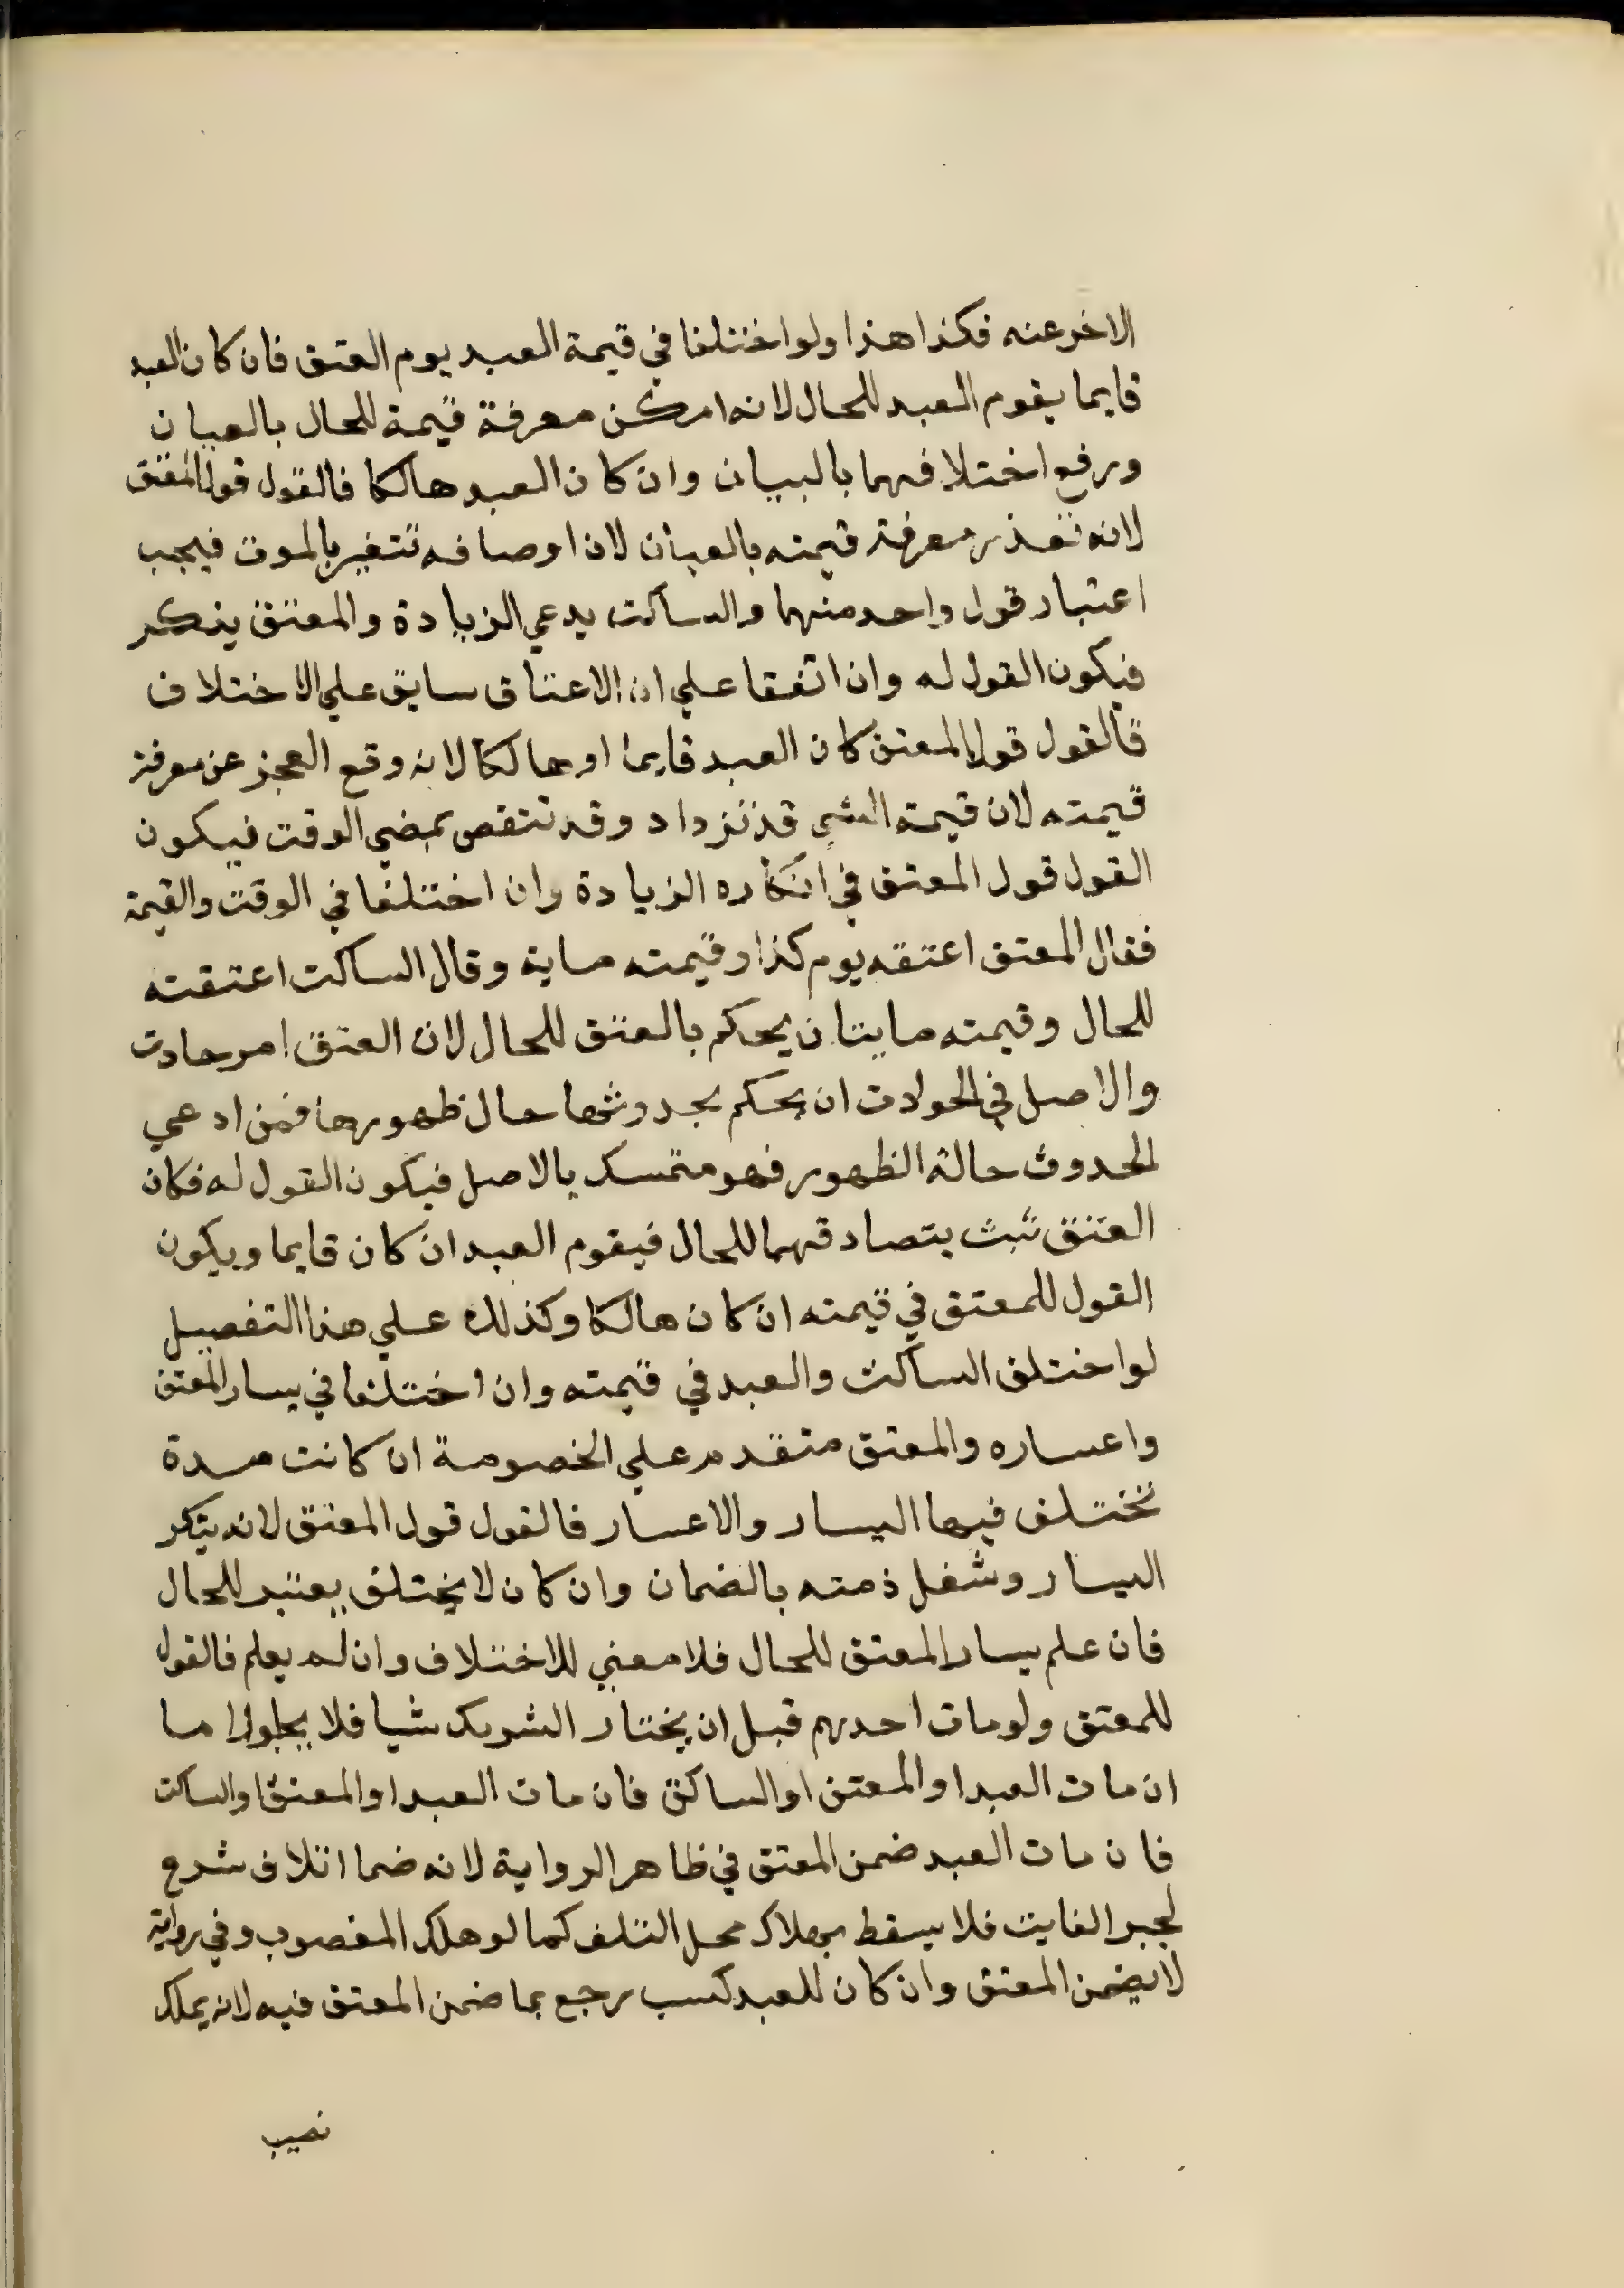 الاخر عنه فكذا هذا ولو اختلفا في قيمة العبد يوم العتق فان كان العبد
قايما يقوم العبد للحال لانه امكن معرفة قيمة للحال بالعيان
ورفع اختلافهما بالبيان وان كان العبد هالكا فالقول قول المعتق
لانه تعذر معرفة قيمته بالعيان لان اوصافه تتغير بالموت فيجب
اعتبار قول واحد منهما والساكت يدعي الزيادة والمعتق ينكر
فيكون القول له وان اتفقا علي ان الاعتاق سابق علي الاختلاف
فالقول قول المعتق كان العبد قايما او هالكا لانه وقع العجز عن معرفة
قيمته لان قيمة الشي قد تزداد وقد تنتقص بمضي الوقت فيكون
القول قول المعتق في انكاره الزيادة وان اختلفا في الوقت والقيمة
فقال المعتق اعتقه يوم كذا وقيمته ماية وقال الساكت اعتقته
للحال وقيمته مايتان يحكم بالعتق للحال لان العتق امر حادث
والاصل في الحوادث ان يحكم بحدوثها حال ظهورها فمن ادعي
الحدوث حالة الظهور فهو متمسك بالاصل فيكون القول له فكان
العتق ثبت بتصادقهما للحال فيقوم العبد ان كان قايما ويكون
القول للمعتق في قيمته ان كان هالكا وكذلك علي هذا التفصيل
لو اختلف الساكت والعبد في قيمته وان اختلفا في يسار المعتق
واعساره والمعتق متقدم علي الخصومة ان كانت مدة
تختلف فيها اليسار والاعسار فالقول قول المعتق لانه ينكر
اليسار وشغل ذمته بالضمان وان كان لا يختلف يعتبر للحال
فان علم يسار المعتق للحال فلا معني للاختلاف وان لم يعلم فالقول
للمعتق ولو مات احدهم قبل ان يختار الشريك شيا فلا يخلوا اما
ان مات العبد او المعتق او الساكت فان مات العبد او المعتق او الساكت
فان مات العبد ضمن المعتق في ظاهر الرواية لانه ضما اتلاف شرع
لجبر الفايت فلا يسقط بهلاك محل التلف كما لو هلك المغصوب وفي رواية
لا يضمن المعتق وان كان للعبد كسب رجع بما ضمن المعتق فيه لانه يملك
نصيب